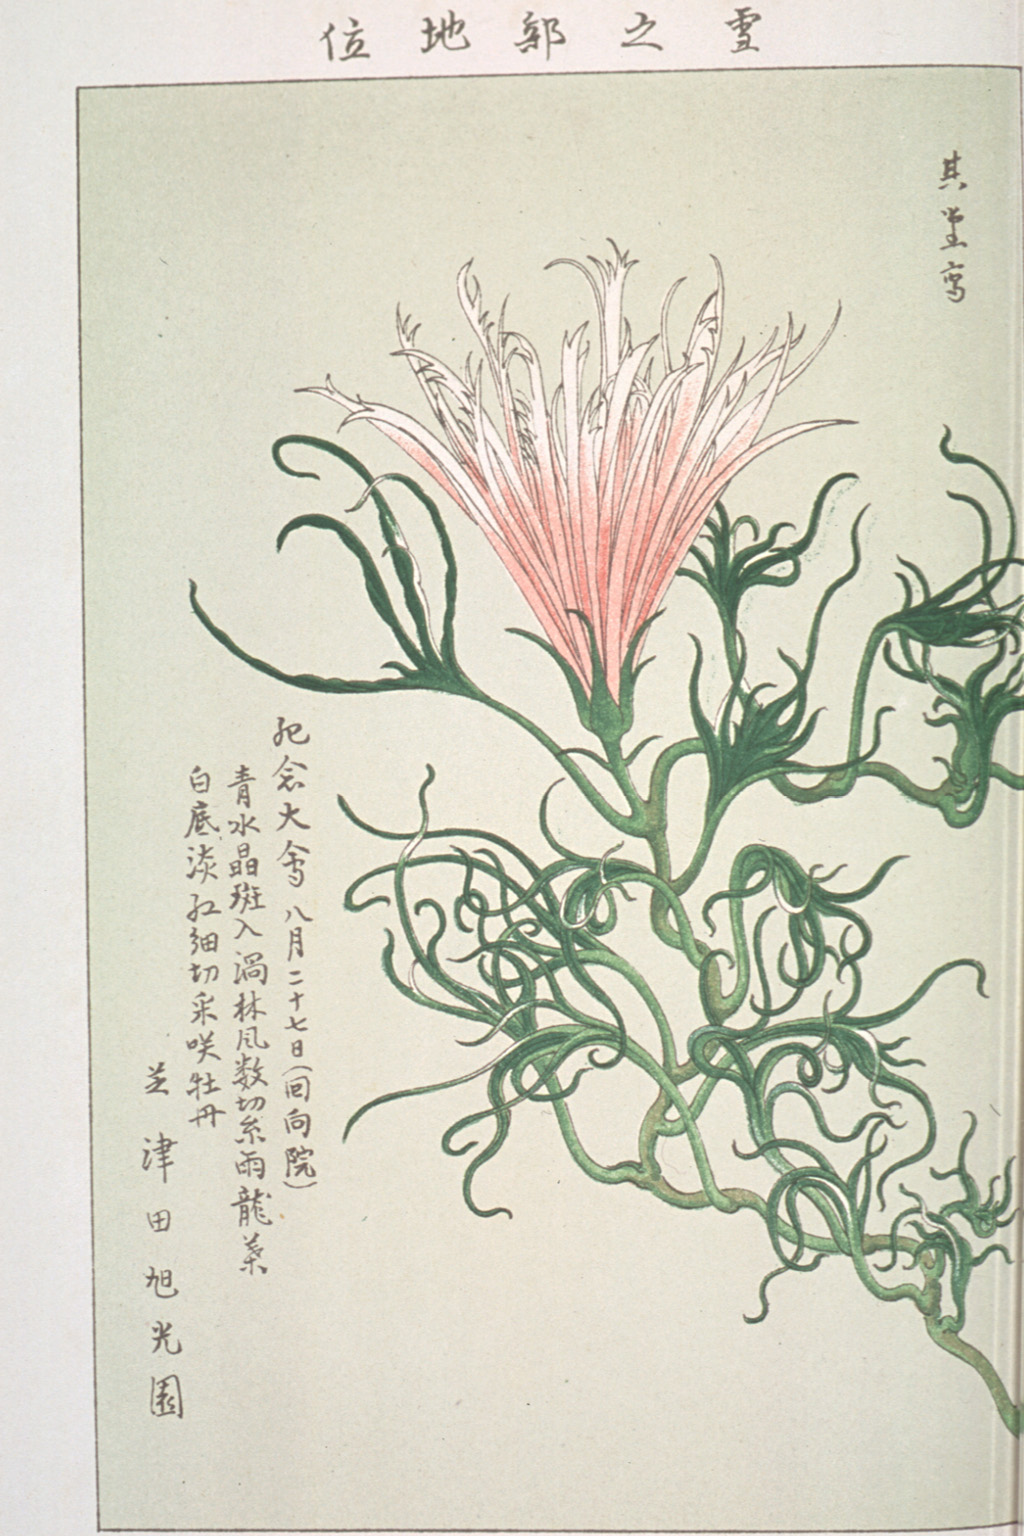 雪之部地位
其堂写
紀念大会八月二十七日(回向院)
青水晶斑入渦林風数切糸雨龍葉
白底淡紅細切采咲牡丹
芝 津田旭光園